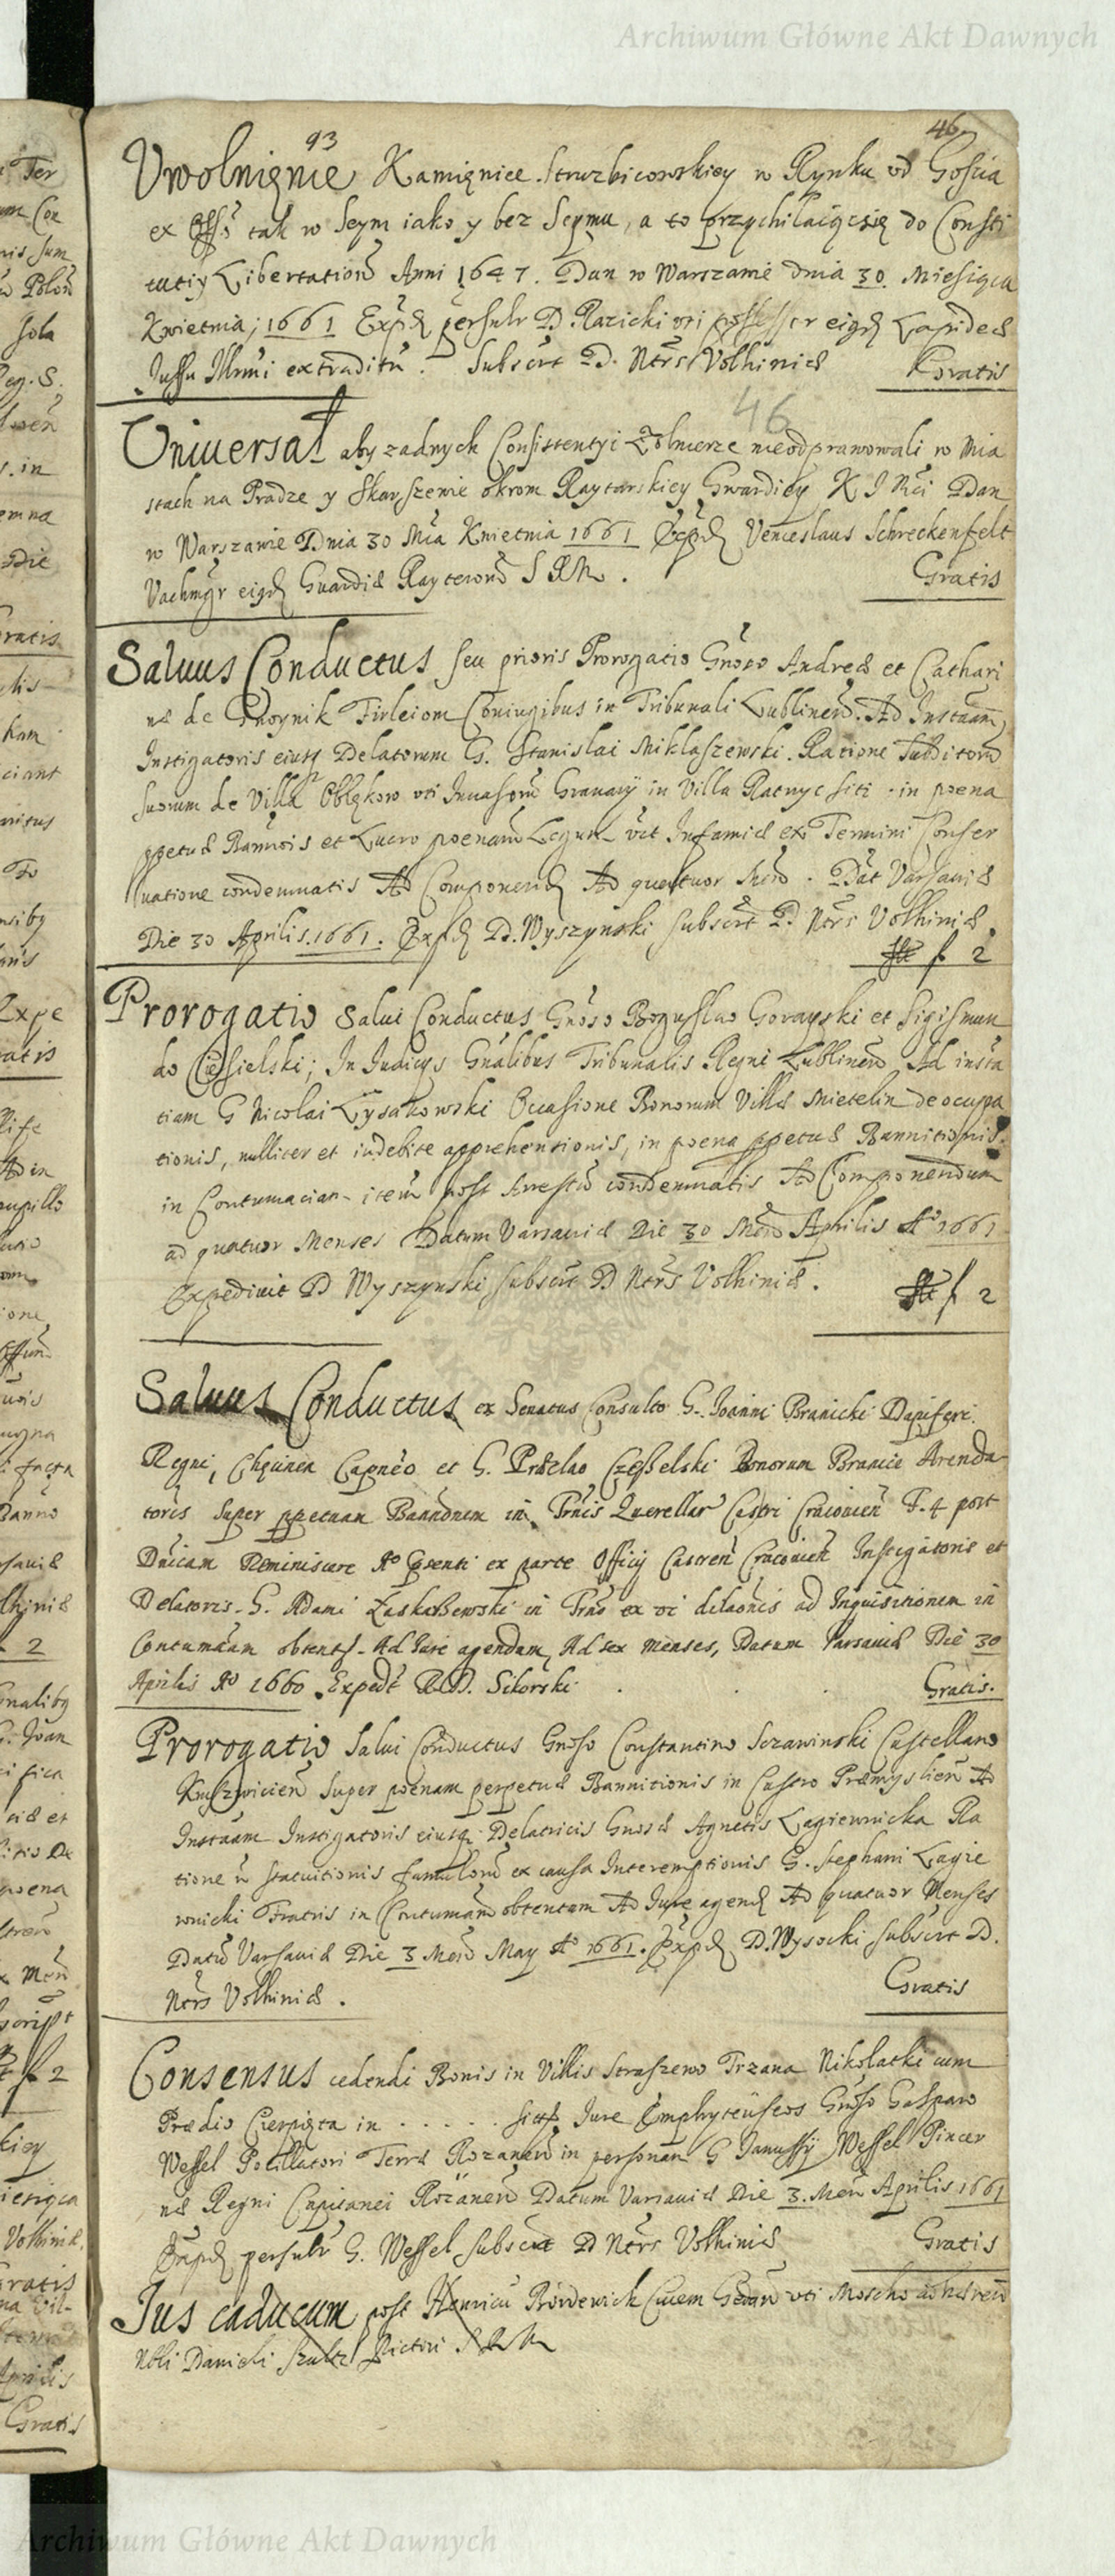 Archiwum Główne Akt Dawnych
93
46
Uwolnienie Kamięnice Struzbicowskiey w Rynku od Gościa
ex Offo tak w Seym iako y bez Seymu, a to przychilaiącsię do Consti
tutiy Libertationu Anni 1647. Dan w Warszawie dnia 30 Miesiąca
Kwietnia, 1661 D. Racicki uti possessor eigd Lapideæ
Jussu Illmi extraditu. Subscrt D. Ntrs Volhiniæ Gratis
46
Uniuersał aby zadnych Consistentyi Zołnierze nieodprawowali w Mia
stach na Pradze y Skarszewie okrom Raytarskiey Gwardiey K J Mći Dan
w Warszawie Dnia 30 Mca Kwietnia 1661 Expd Venceslaus Schreckenfelt
Vachmgr eigd Guardiæ Rayteronu S R M. Gratis
Saluus Conductus seu prioris Prorogatio Gnoso Andreæ et Cathari
næ de Firleiom Coniugibus in Tribunali Lublinen. Ad Instaam
Instigatoris eiusq Delatorum G. Stanislai Miklaszewski. Ratione Subditoru
suorum de Villa Oblękow uti Inuasoru Granarÿ in Villa Ratnyc siti in poena
ppetuæ Bannois et Lucro poenaru Legum vet Infamiæ ex Termini Conser
uatione condemnatis Ad Componend Ad quatuor Men. Dat Varsauiæ
Die 30 Aprilis 1661. Expd D. Wyszynski subscrt D. Ntrs Volhiniæ.
f 2
Prorogatio Salui Conductus Gnoso Boguslao Gorayski et Sigismun
do Ciesielski; In Iudicÿs Gnalibus Tribunalis Regni Lublinen Ad insta
tiam G Nicolai Łysakowski Occasione Bonorum Villæ Mietelin de occupa
tionis, nulliter et indebite apprehentionis, in poena ppetuæ Bannitionis
in Contumaciam item post Arrestu condemnatis Ad Componendum
ad quatuor Menses Datum Varsauiæ Die 30 Men Aprilis Ao 1661
Expediuit D Wyszynski subscrt D Ntrs Volhiniæ. f 2
Saluus Conductus ex Senatus Consulto G. Joanni Branicki Dapifero
Regni, Chęcinen Capneo et G. Przclao Bonorum Branice Arenda
toris super ppetuam Bannonem in Trnis Querellar Castri Cracouien F. 4 post
Dnicam Reminiscere Ao Psenti ex parte Officÿ Castren Cracouien Instigatoris et
Delatoris G. Adami in Trno ex vi dilaonis ad Inquisitionem in
Contumaam obtent. Ad Jure agendum, Ad sex Menses, Datum Varsauiæ Die 30
Aprilis Ao 1660. Expedt R.D. Sikorski . . . Gratis.
Prorogatio Salui Conductus Gnoso Constantino Szczawinski Castellano
super poenam perpetuæ Bannitionis in Castro Præmyslien Ad
Instaam Instigatoris eiusq Delatricis Gnosæ Agnetis Lagiewnicka Ra
tione n statuitionis famulonu ex causa Interemptionis G. Stephani Lagie
wnicki Fratris in Contumam obtentum Ad Jure agend Ad quatuor Menses
Datu Varsauiæ Die 3 Men May Ao 1661. Expd D. Wysocki subscrt D.
Ntrs Volhiniæ. Gratis
Consensus cedendi Bonis in Villis Straszewo Trzana Nikolatki cum
Prædio Cierpięta in . . . . . Jure Emphyteuseos Gnoso Gasparo
Wessel Pocillatori Terræ Rozanen in personam G Janussÿ Wessel Pincer
næ Regni Capitanei Rozanen Datum Varsauiæ Die 3. Men Aprilis 1661
Expd G. Wessel subscrt D Ntrs Volhiniæ Gratis
Jus caducum post Henricu Ciuem Gedan uti Moscho adhæren
Nbli Danieli Szultz Pictori S R M
Archiwum Główne Akt Dawnych